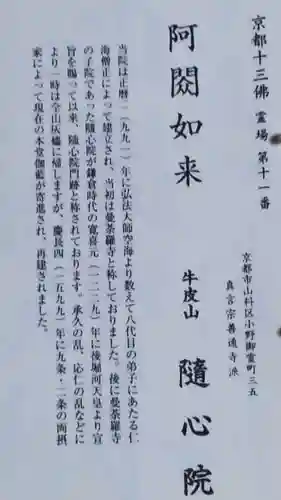 京都十三佛 霊場 第十一番
京都市山科区小野御霊町三五
真言宗善通寺派
阿閦如来
牛皮山 隨心院
当院は正暦二(九九一)年に弘法大師空海より数えて八代目の弟子にあたる仁
海僧正によって建立され、当初は曼荼羅寺と称しておりました。後に曼荼羅寺
の子院であった隨心院が鎌倉時代の寛喜元(一二二九)年に後堀河天皇より宣
旨を賜って以来、隨心院門跡と称されております。承久の乱、応仁の乱などに
より一時は全山灰燼に帰しますが、慶長四(一五九九)年に九条・二条の両摂
家によって現在の本堂伽藍が寄進され、再建されました。